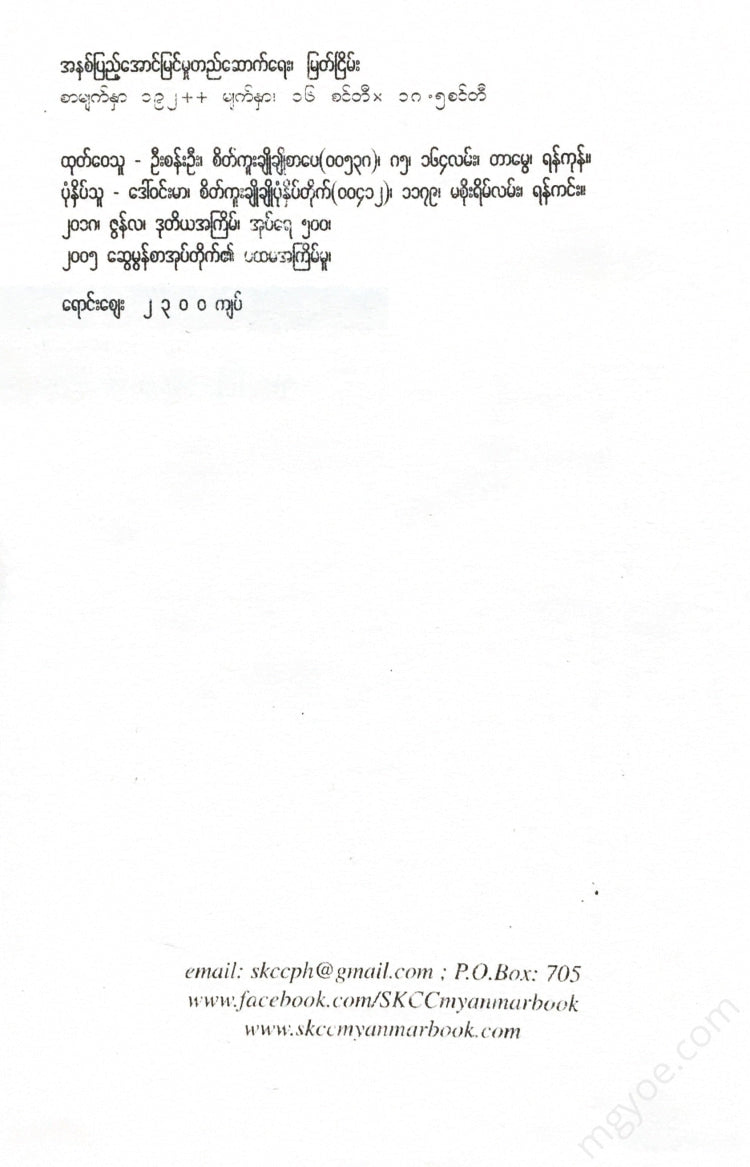 အနှစ်ပြည့်အောင်မြင်မှုတည်ဆောက်ရေး၊ မြတ်ငြိမ်း
စာမျက်နှာ ၁၉၂++ မျက်နှာ၊ ၁၆ စင်တီ× ၁၈.၅စင်တီ
ထုတ်ဝေသူ - ဦးစန်းဦး၊ စိတ်ကူးချိုချိုစာပေ(၀၀၅၃၈)၊ ၈၅၊ ၁၆၄လမ်း၊ တာမွေ၊ ရန်ကုန်။
ပုံနှိပ်သူ - ဒေါ်ဝင်းမာ၊ စိတ်ကူးချိုချိုပုံနှိပ်တိုက်(၀၀၄၁၂)၊ ၁၁၇၉၊ မစိုးရိမ်လမ်း၊ ရန်ကင်း။
၂၀၁၈၊ ဇွန်လ၊ ဒုတိယအကြိမ်၊ အုပ်ရေ ၅၀၀၊
၂၀၀၅ ဆွေမွန်စာအုပ်တိုက်၏ ပထမအကြိမ်မူ၊
ရောင်းဈေး ၂ ၃ ၀ ၀ ကျပ်
email: skccph@gmail.com ; P.O.Box: 705
www.facebook.com/SKCCmyanmarbook
www.skccmyanmarbook.com
mgyoe.com